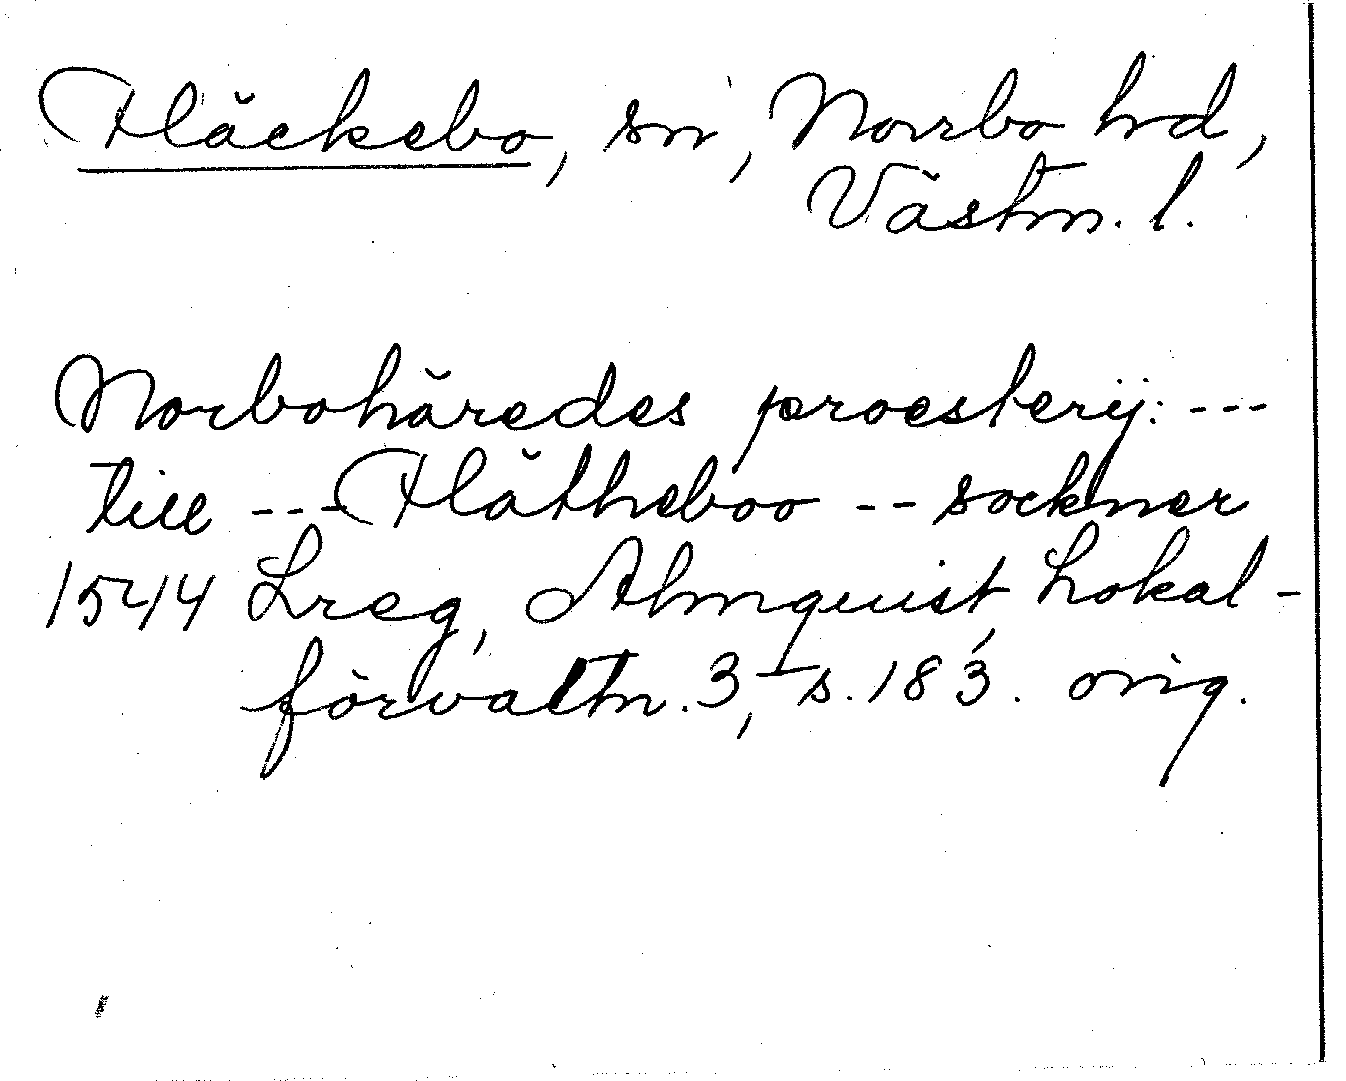 Fläckebo, sn, Norrbo hrd,
Västm. l.
Norbohäredes proesterij: ---
till --- Flätheboo -- socknar
1544 Lreg, Almquist, Lokal-
förvaltn. 3, s. 183. orig.